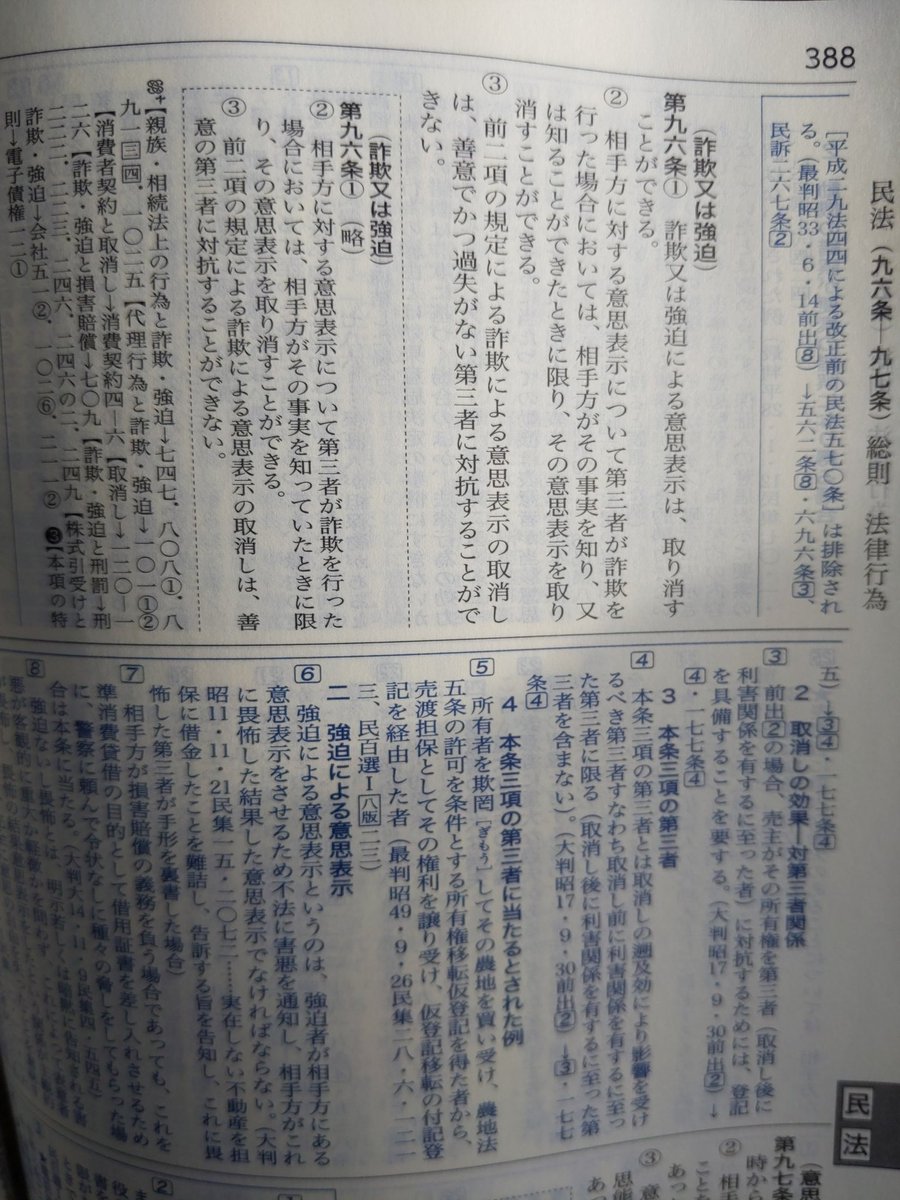 388
民法(九六条―九七条) 総則 法律行為
〔平成二九法四四による改正前の民法五七〇条〕は排除され
る。(最判昭33・6・14前出⑧)→五六二条⑧・六九六条③、
民訴二六七条②
(詐欺又は強迫)
第九六条① 詐欺又は強迫による意思表示は、取り消す
ことができる。
② 相手方に対する意思表示について第三者が詐欺を
行った場合においては、相手方がその事実を知り、又
は知ることができたときに限り、その意思表示を取り
消すことができる。
③ 前二項の規定による詐欺による意思表示の取消し
は、善意でかつ過失がない第三者に対抗することがで
きない。
(詐欺又は強迫)
第九六条① (略)
② 相手方に対する意思表示について第三者が詐欺を行った
場合においては、相手方がその事実を知っていたときに限
り、その意思表示を取り消すことができる。
③ 前二項の規定による詐欺による意思表示の取消しは、善
意の第三者に対抗することができない。
【親族・相続法上の行為と詐欺・強迫→七四七、八〇八①、八
九一③④、一〇二五【代理行為と詐欺・強迫→一〇一①②
【消費者契約と取消し→消費契約四―六【取消し→一二〇―一
二六【詐欺・強迫と損害賠償→七〇九【詐欺・強迫と刑罰→刑
二二二、二二三、二四六、二四六の二、二四九【株式引受けと
詐欺・強迫→会社五一②、一〇二⑥、二一一② ❸【本項の特
則→電子債権一二①
五)→③④・一七七条④
2 取消しの効果―対第三者関係
③ 前出②の場合、売主がその所有権を第三者(取消し後に
利害関係を有するに至った者)に対抗するためには、登記
を具備することを要する。(大判昭17・9・30前出②)→
④・一七七条④
3 本条三項の第三者
④ 本条三項の第三者とは取消しの遡及効により影響を受け
るべき第三者すなわち取消し前に利害関係を有するに至っ
た第三者に限る(取消し後に利害関係を有するに至った第
三者を含まない)。(大判昭17・9・30前出②)→③・一七七
条④
4 本条三項の第三者に当たるとされた例
⑤ 所有者を欺罔[ぎもう]してその農地を買い受け、農地法
五条の許可を条件とする所有権移転仮登記を得た者から、
売渡担保としてその権利を譲り受け、仮登記移転の付記登
記を経由した者(最判昭49・9・26民集二八・六・一二一
三、民百選Ⅰ[八版]二三)
二 強迫による意思表示
⑥ 強迫による意思表示というのは、強迫者が相手方にある
意思表示をさせるため不法に害悪を通知し、相手方がこれ
に畏怖した結果した意思表示でなければならない。(大判
昭11・11・21民集一五・二〇七二……実在しない不動産を担
保に借金したことを難詰し、告訴する旨を告知し、これに畏
怖した第三者が手形を裏書した場合)
⑦ 相手方が損害賠償の義務を負う場合であっても、これを
準消費貸借の目的として借用証書を差し入れさせるため
に、警察に頼んで令状なしに種々の脅しをしてもらった場
合は本条に当たる。(大判大14・11・9民集四・五四五)
⑧ 強迫ないし畏怖とは、明示若しくは暗黙に告知される害
民法
(意思
第九七条
時から
②
③